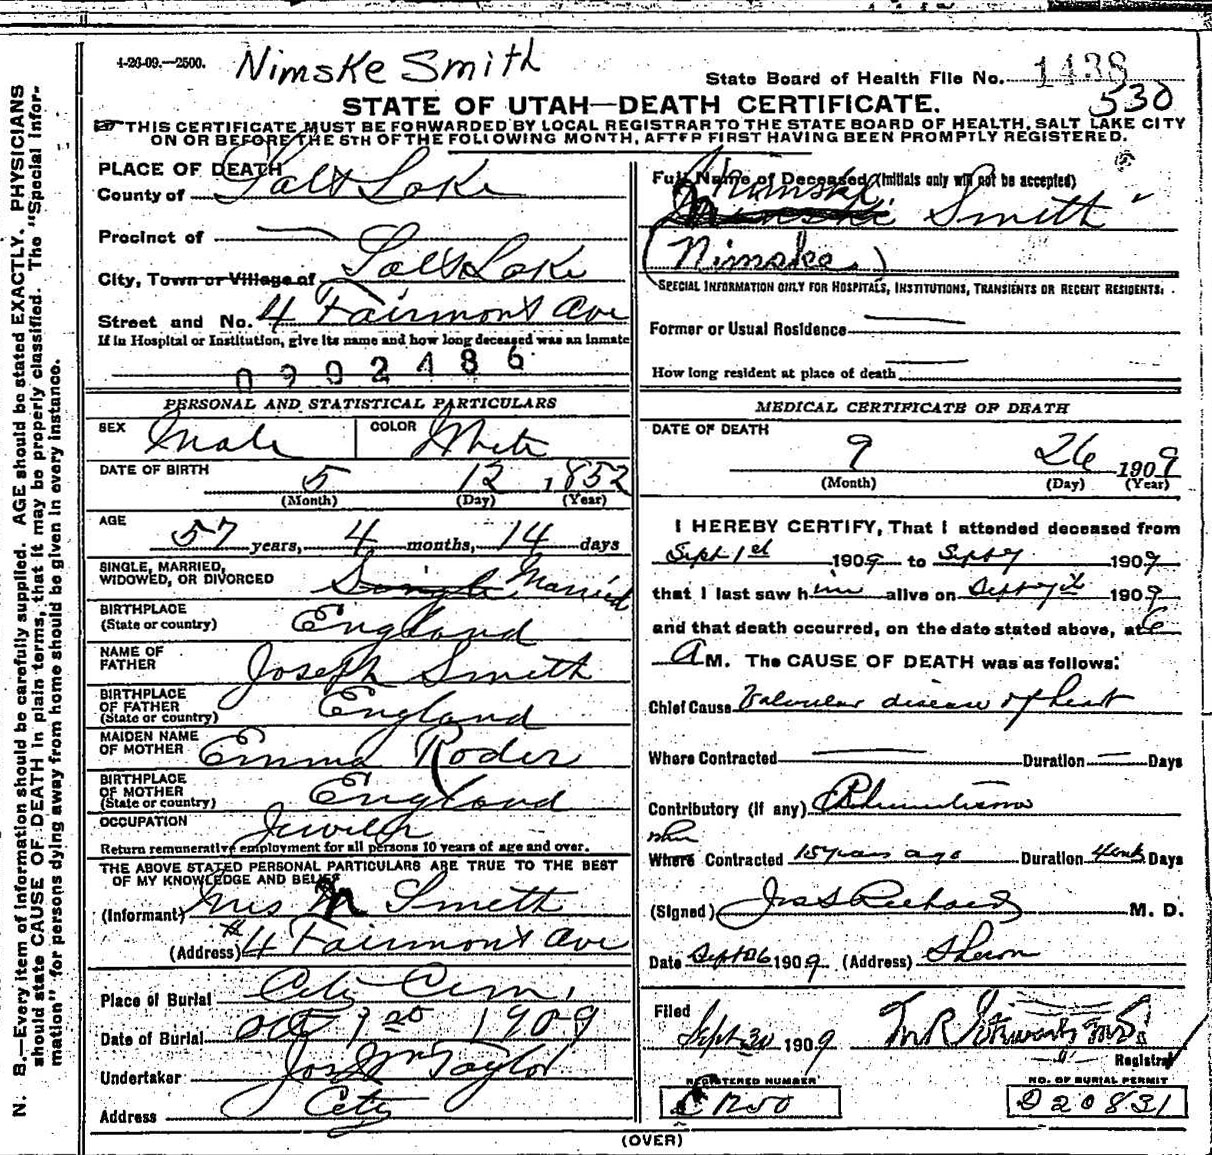 4-26-09.—2500.
Nimske Smith
State Board of Health File No. 1438
530
STATE OF UTAH—DEATH CERTIFICATE.
THIS CERTIFICATE MUST BE FORWARDED BY LOCAL REGISTRAR TO THE STATE BOARD OF HEALTH, SALT LAKE CITY
ON OR BEFORE THE 5TH OF THE FOLLOWING MONTH, AFTER FIRST HAVING BEEN PROMPTLY REGISTERED.
PLACE OF DEATH
County of Salt Lake
Precinct of —
City, Town or Village of Salt Lake
Street and No. 4 Fairmont Ave
If in Hospital or Institution, give its name and how long deceased was an inmate
0902486
PERSONAL AND STATISTICAL PARTICULARS
SEX Male COLOR White
DATE OF BIRTH 5 12 1852
(Month) (Day) (Year)
AGE 57 years, 4 months, 14 days
SINGLE, MARRIED,
WIDOWED, OR DIVORCED Single Married
BIRTHPLACE
(State or country) England
NAME OF
FATHER Joseph Smith
BIRTHPLACE
OF FATHER
(State or country) England
MAIDEN NAME
OF MOTHER Emma Roder
BIRTHPLACE
OF MOTHER
(State or country) England
OCCUPATION Jeweler
Return remunerative employment for all persons 10 years of age and over.
THE ABOVE STATED PERSONAL PARTICULARS ARE TRUE TO THE BEST
OF MY KNOWLEDGE AND BELIEF
(Informant) Mrs N Smith
(Address) #4 Fairmont Ave
Place of Burial City Cem.
Date of Burial Oct 1st 1909
Undertaker Jos Wm Taylor
Address City
Full Name of Deceased (Initials only will not be accepted)
Smith
(Nimske)
SPECIAL INFORMATION ONLY FOR HOSPITALS, INSTITUTIONS, TRANSIENTS OR RECENT RESIDENTS.
Former or Usual Residence —
How long resident at place of death —
MEDICAL CERTIFICATE OF DEATH
DATE OF DEATH
9 26 1909
(Month) (Day) (Year)
I HEREBY CERTIFY, That I attended deceased from
Sept 1st 1909 to Sept 7 1909
that I last saw him alive on Sept 7th 1909
and that death occurred, on the date stated above, at 6
A M. The CAUSE OF DEATH was as follows:
Chief Cause Valvular disease of heart
Where Contracted — Duration — Days
Contributory (if any) Rheumatism
when
Where Contracted 15 years ago Duration 4 wks Days
(Signed) Jas S Richards M. D.
Date Sept 26 1909 (Address) Sharon
Filed
Sept 30 1909 M.D.
Registrar
REGISTERED NUMBER
1250
NO. OF BURIAL PERMIT
D20831
(OVER)
N. B.—Every item of information should be carefully supplied. AGE should be stated EXACTLY. PHYSICIANS
should state CAUSE OF DEATH in plain terms, that it may be properly classified. The "Special Infor-
mation" for persons dying away from home should be given in every instance.